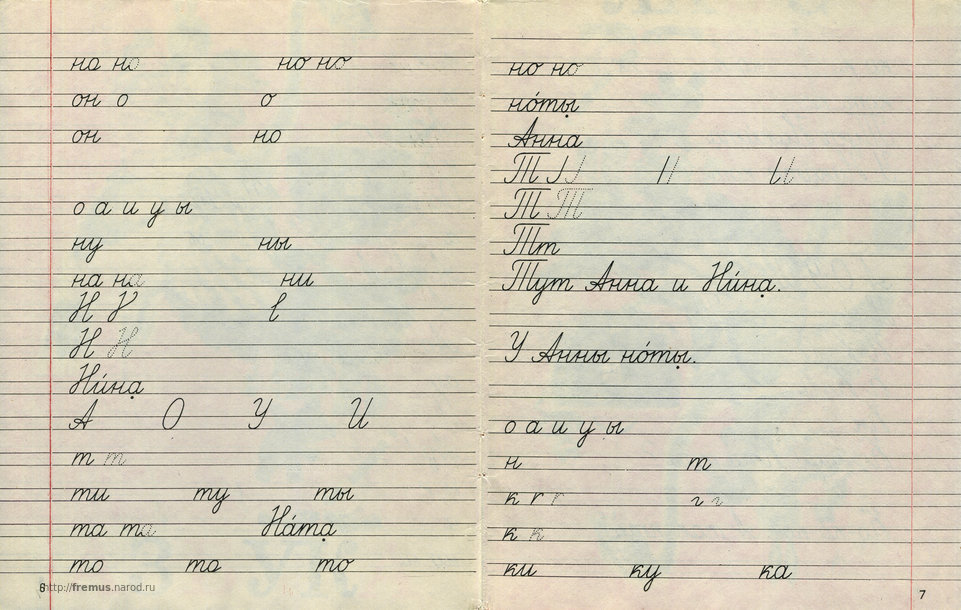 но но но но
он о о
он но
о а и у ы
ну ны
на на ни
Н
Н Н
Ни́на
А О У И
т т
ти ту ты
та та На́та
то то то
6 http://fremus.narod.ru
но но
но́ты
Анна
Т
Т Т
Тт
Тут Анна и Ни́на.
У Анны но́ты.
о а и у ы
н т
к
к к
ки ку ка
7